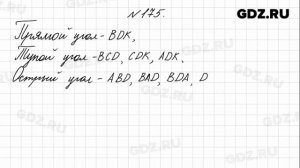 GDZ.RU
№175.
Прямой угол - BDK,
Тупой угол - BCD, CDK, ADK.
Острый угол - ABD, BAD, BDA, D